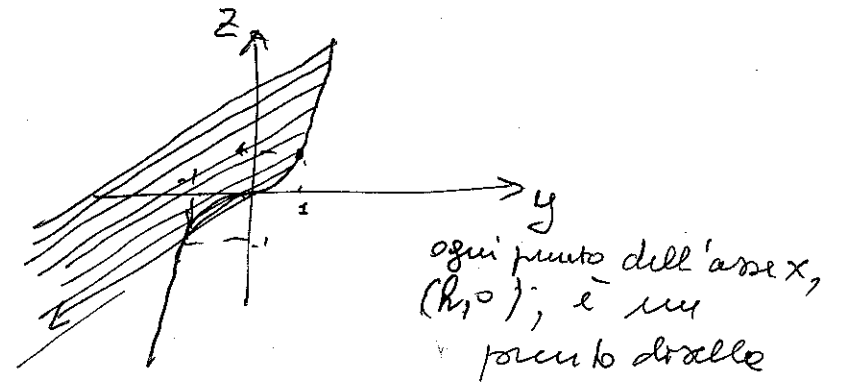 Z
-1
1
-1
y
ogni punto dell'asse x,
(h,0), è un
punto di sella